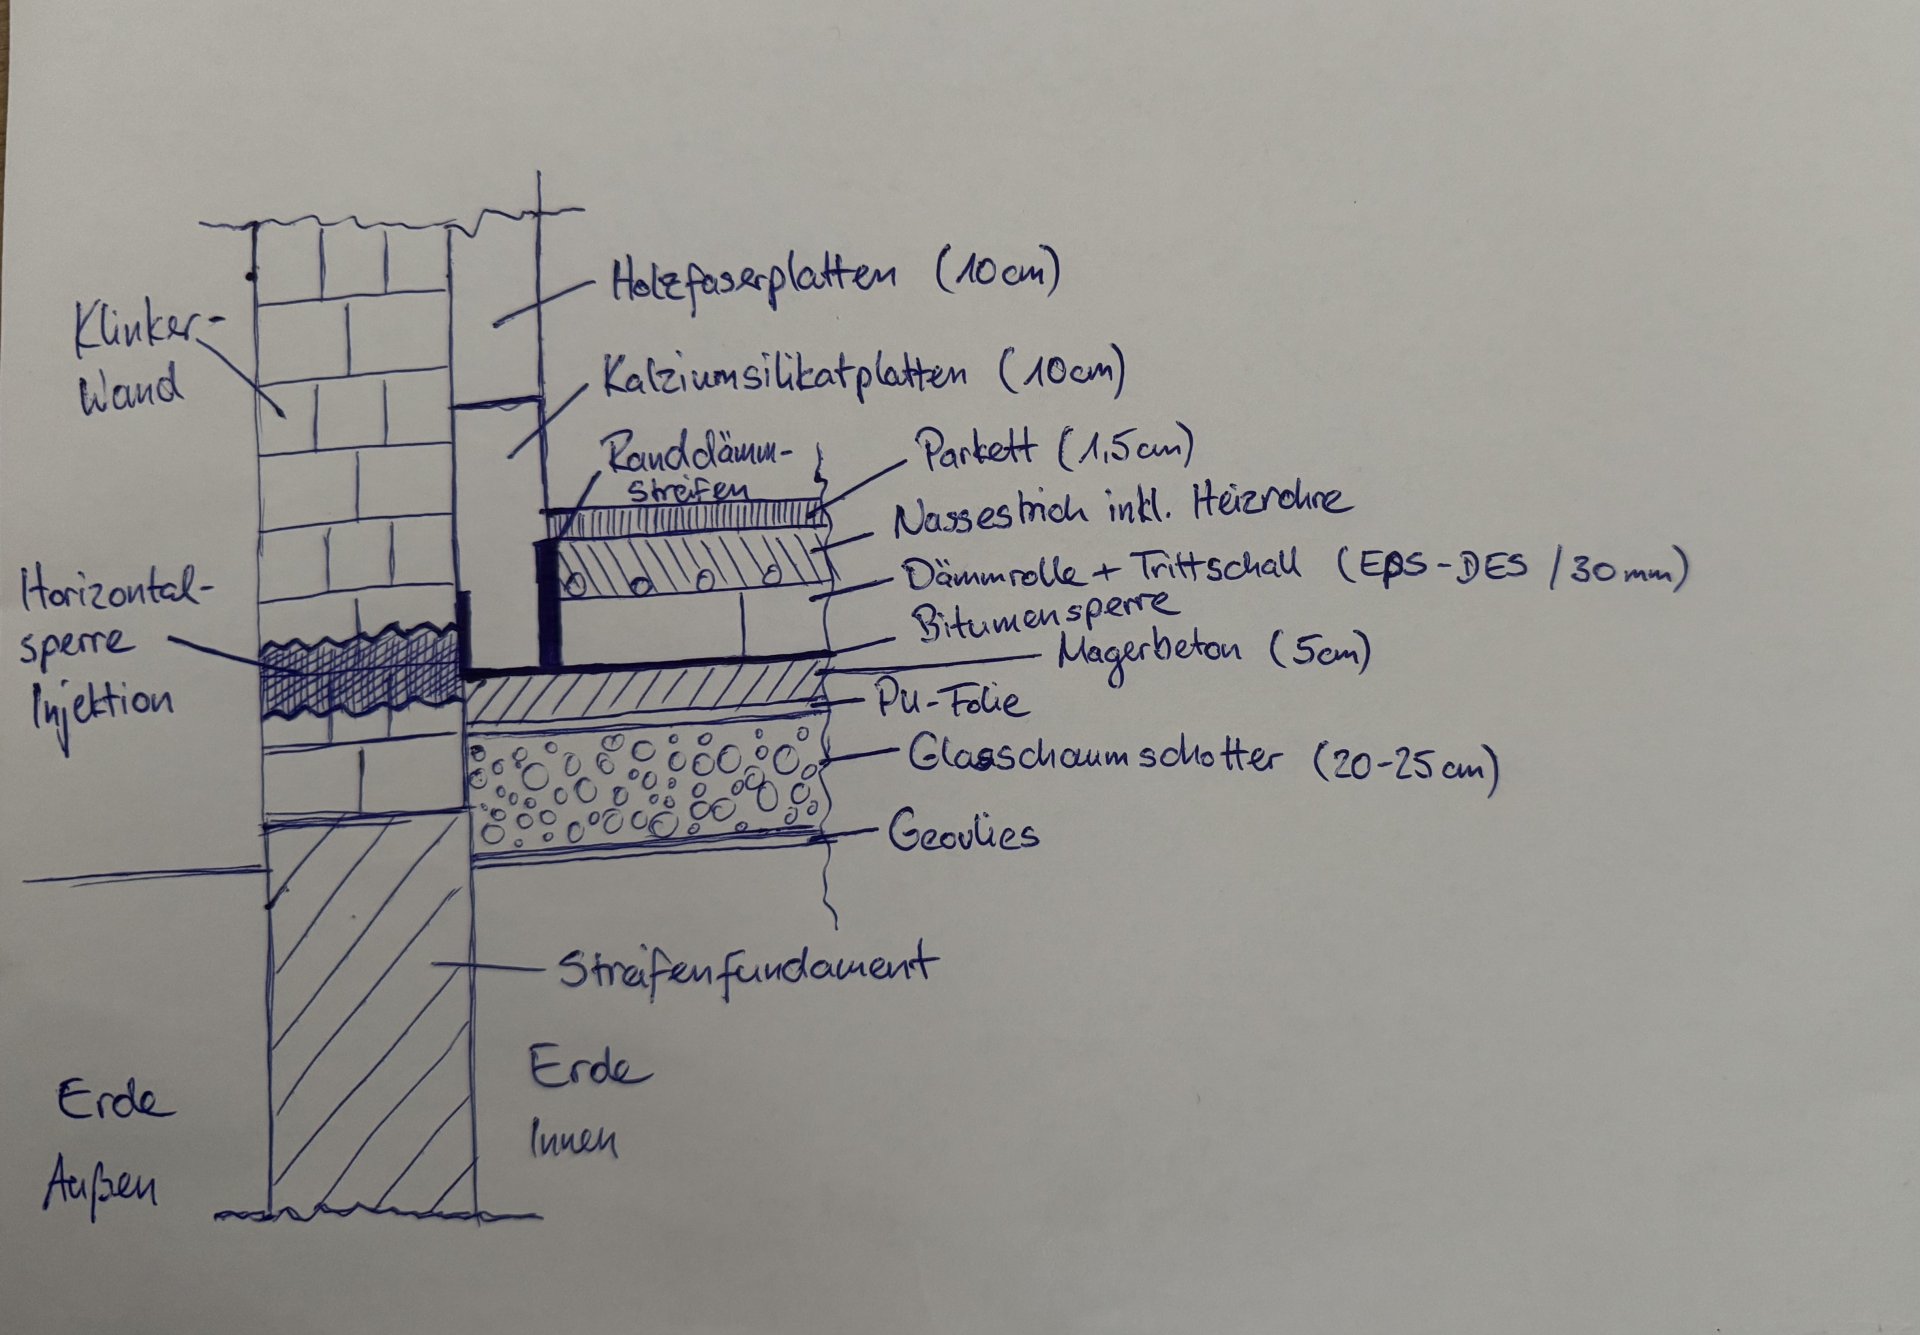 Holzfaserplatten (10cm)
Klinker-
Wand
Kalziumsilikatplatten (10cm)
Randdämm-
streifen
Parkett (1,5cm)
Nassestrich inkl. Heizrohre
Dämmrolle + Trittschall (EPS-DES / 30mm)
Bitumensperre
Magerbeton (5cm)
Horizontal-
sperre
Injektion
PU-Folie
Glasschaumschotter (20-25cm)
Geovlies
Streifenfundament
Erde
Innen
Erde
Außen